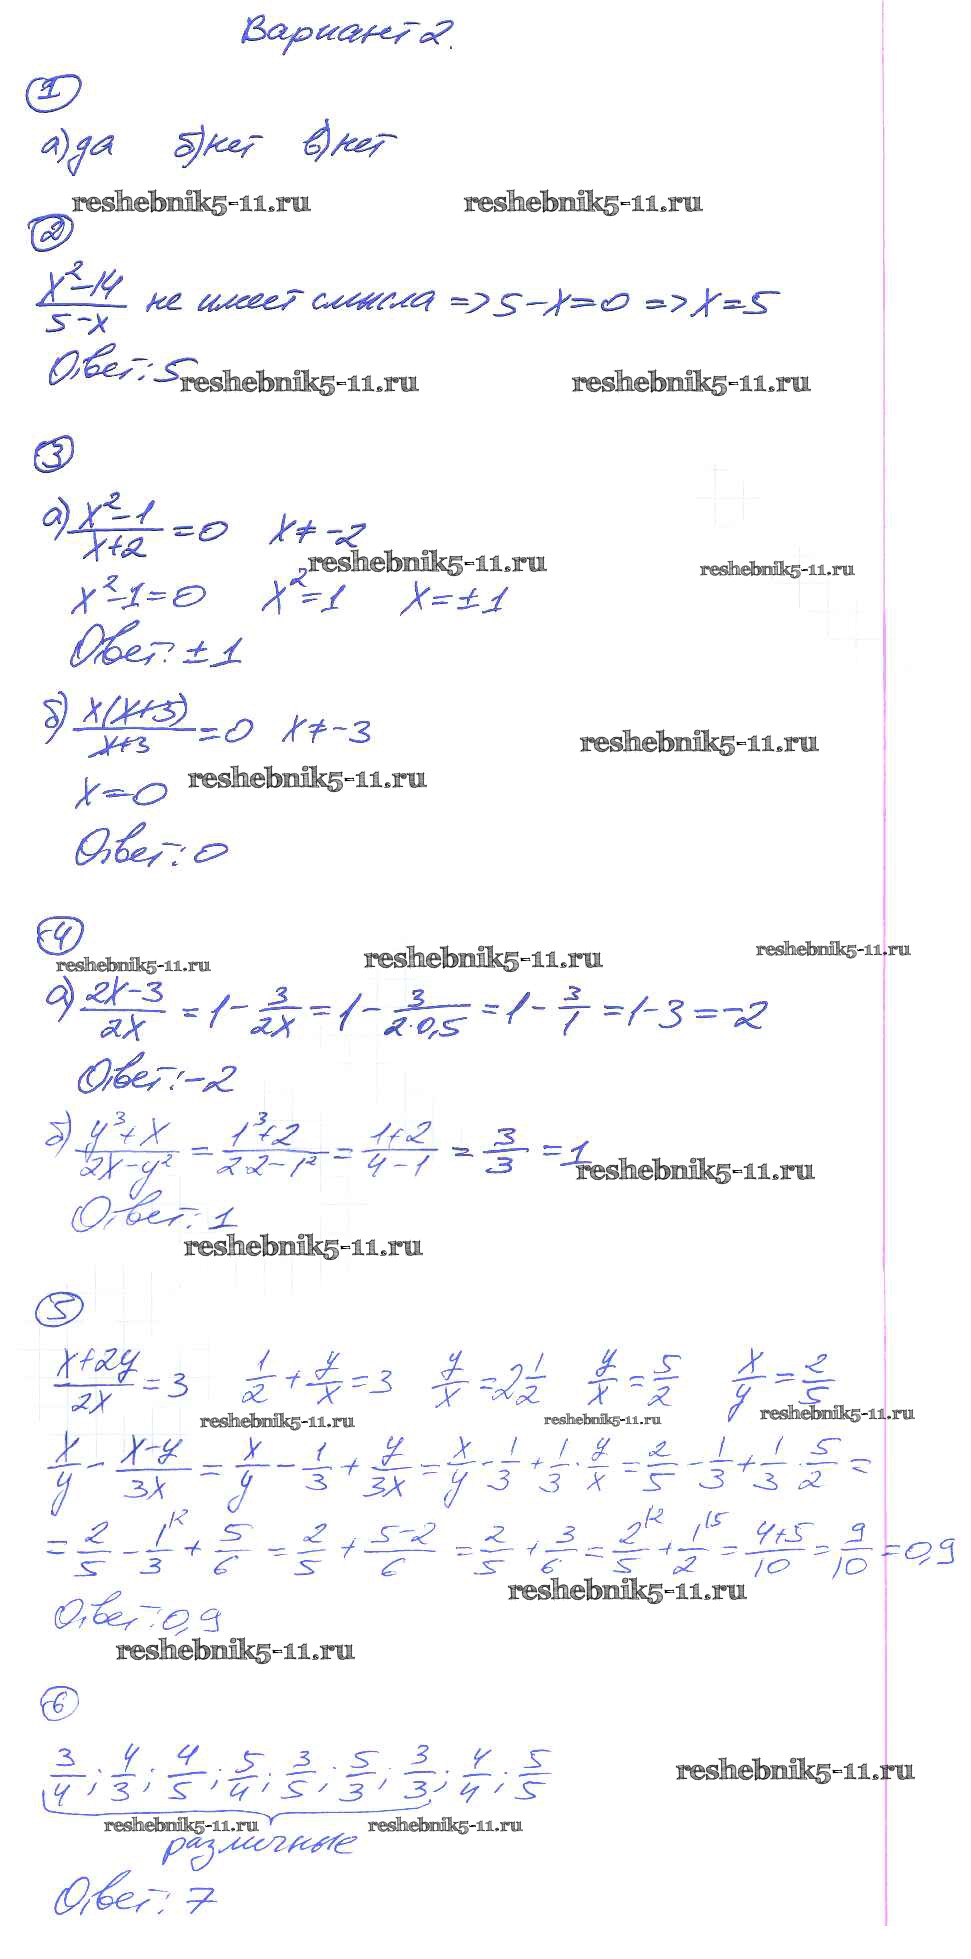 Вариант 2.
1
а) да б) нет в) нет
reshebnik5-11.ru reshebnik5-11.ru
2
(x²-14)/(5-x) не имеет смысла => 5-x=0 => x=5
Ответ: 5
reshebnik5-11.ru reshebnik5-11.ru
3
а) (x²-1)/(x+2) = 0 x≠-2
reshebnik5-11.ru reshebnik5-11.ru
x²-1=0 x²=1 x=±1
Ответ: ±1
б) x(x+3)/(x+3) = 0 x≠-3
reshebnik5-11.ru
reshebnik5-11.ru
x=0
Ответ: 0
4
reshebnik5-11.ru reshebnik5-11.ru reshebnik5-11.ru
а) (2x-3)/(2x) = 1 - 3/(2x) = 1 - 3/(2·0,5) = 1 - 3/1 = 1-3 = -2
Ответ: -2
б) (y³+x)/(2x-y²) = (1³+2)/(2·2-1²) = (1+2)/(4-1) = 3/3 = 1
reshebnik5-11.ru
Ответ: 1
reshebnik5-11.ru
5
(x+2y)/(2x) = 3 1/2 + y/x = 3 y/x = 2 1/2 y/x = 5/2 x/y = 2/5
reshebnik5-11.ru reshebnik5-11.ru reshebnik5-11.ru
x/y - (x-y)/(3x) = x/y - 1/3 + y/(3x) = x/y - 1/3 + 1/3 · y/x = 2/5 - 1/3 + 1/3 · 5/2 =
= 2/5 - 1/3 |2 + 5/6 = 2/5 + (5-2)/6 = 2/5 + 3/6 = 2/5 |2 + 1/2 |5 = (4+5)/10 = 9/10 = 0,9
reshebnik5-11.ru
Ответ: 0,9
reshebnik5-11.ru
6
3/4; 4/3; 4/5; 5/4; 3/5; 5/3; 3/3; 4/4; 5/5
reshebnik5-11.ru
reshebnik5-11.ru reshebnik5-11.ru
различные
Ответ: 7